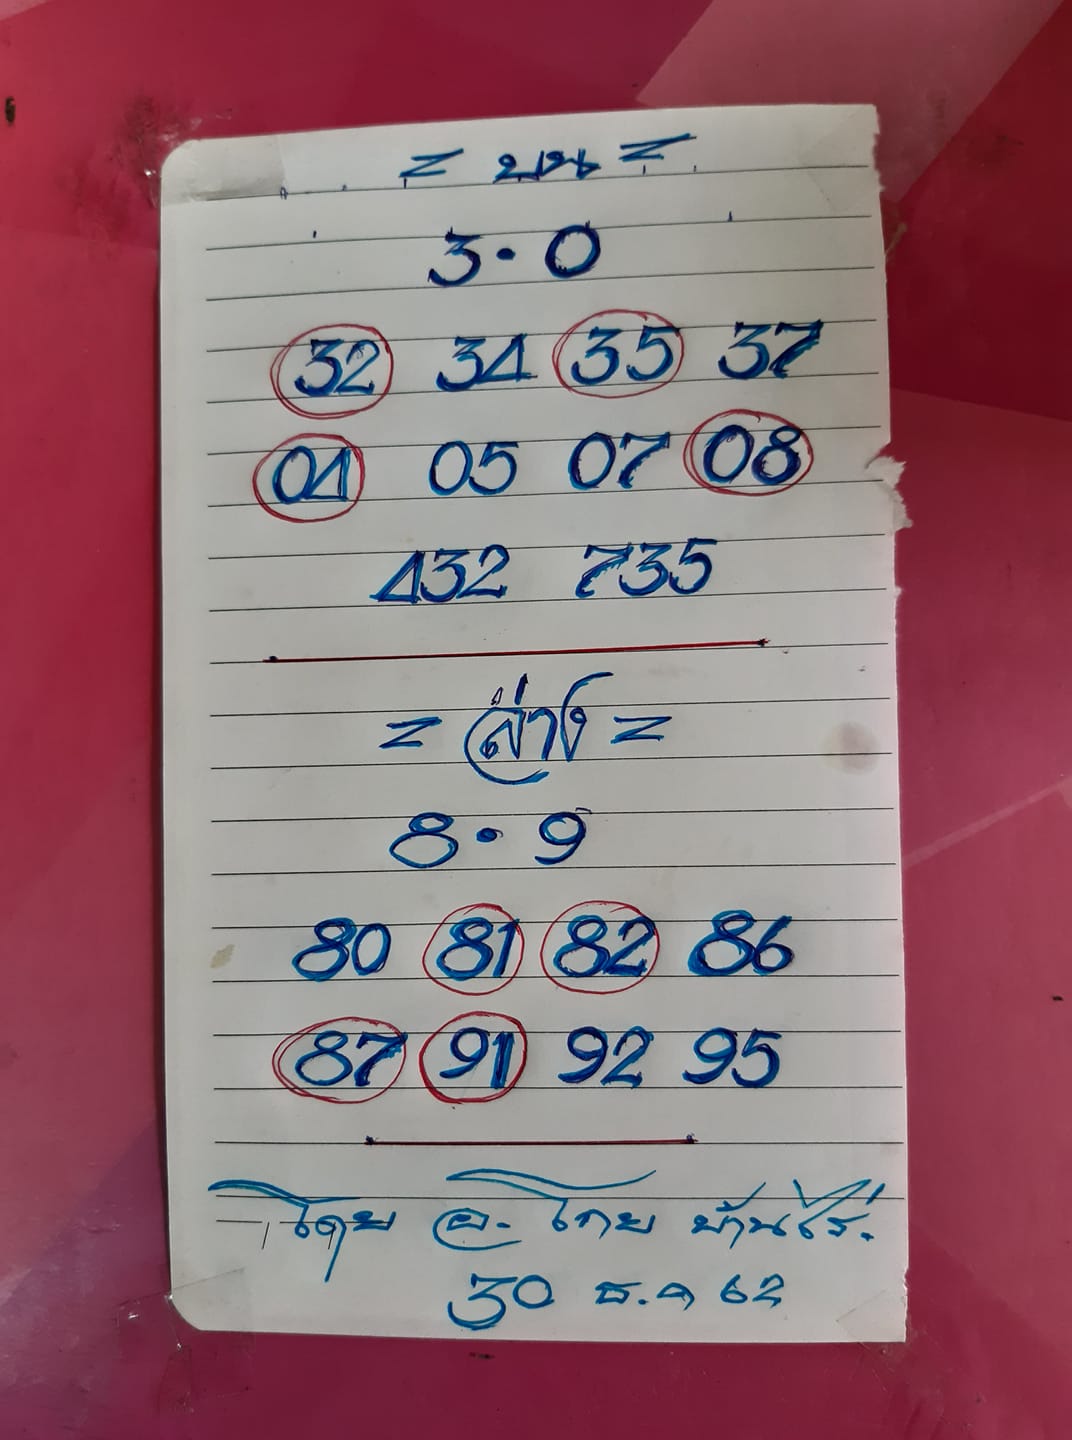 = บน =
3 · 0
32 34 35 37
04 05 07 08
432 735
= ล่าง =
8 · 9
80 81 82 86
87 91 92 95
โดย อ. โกย บ้านไร่.
30 ธ.ค 62